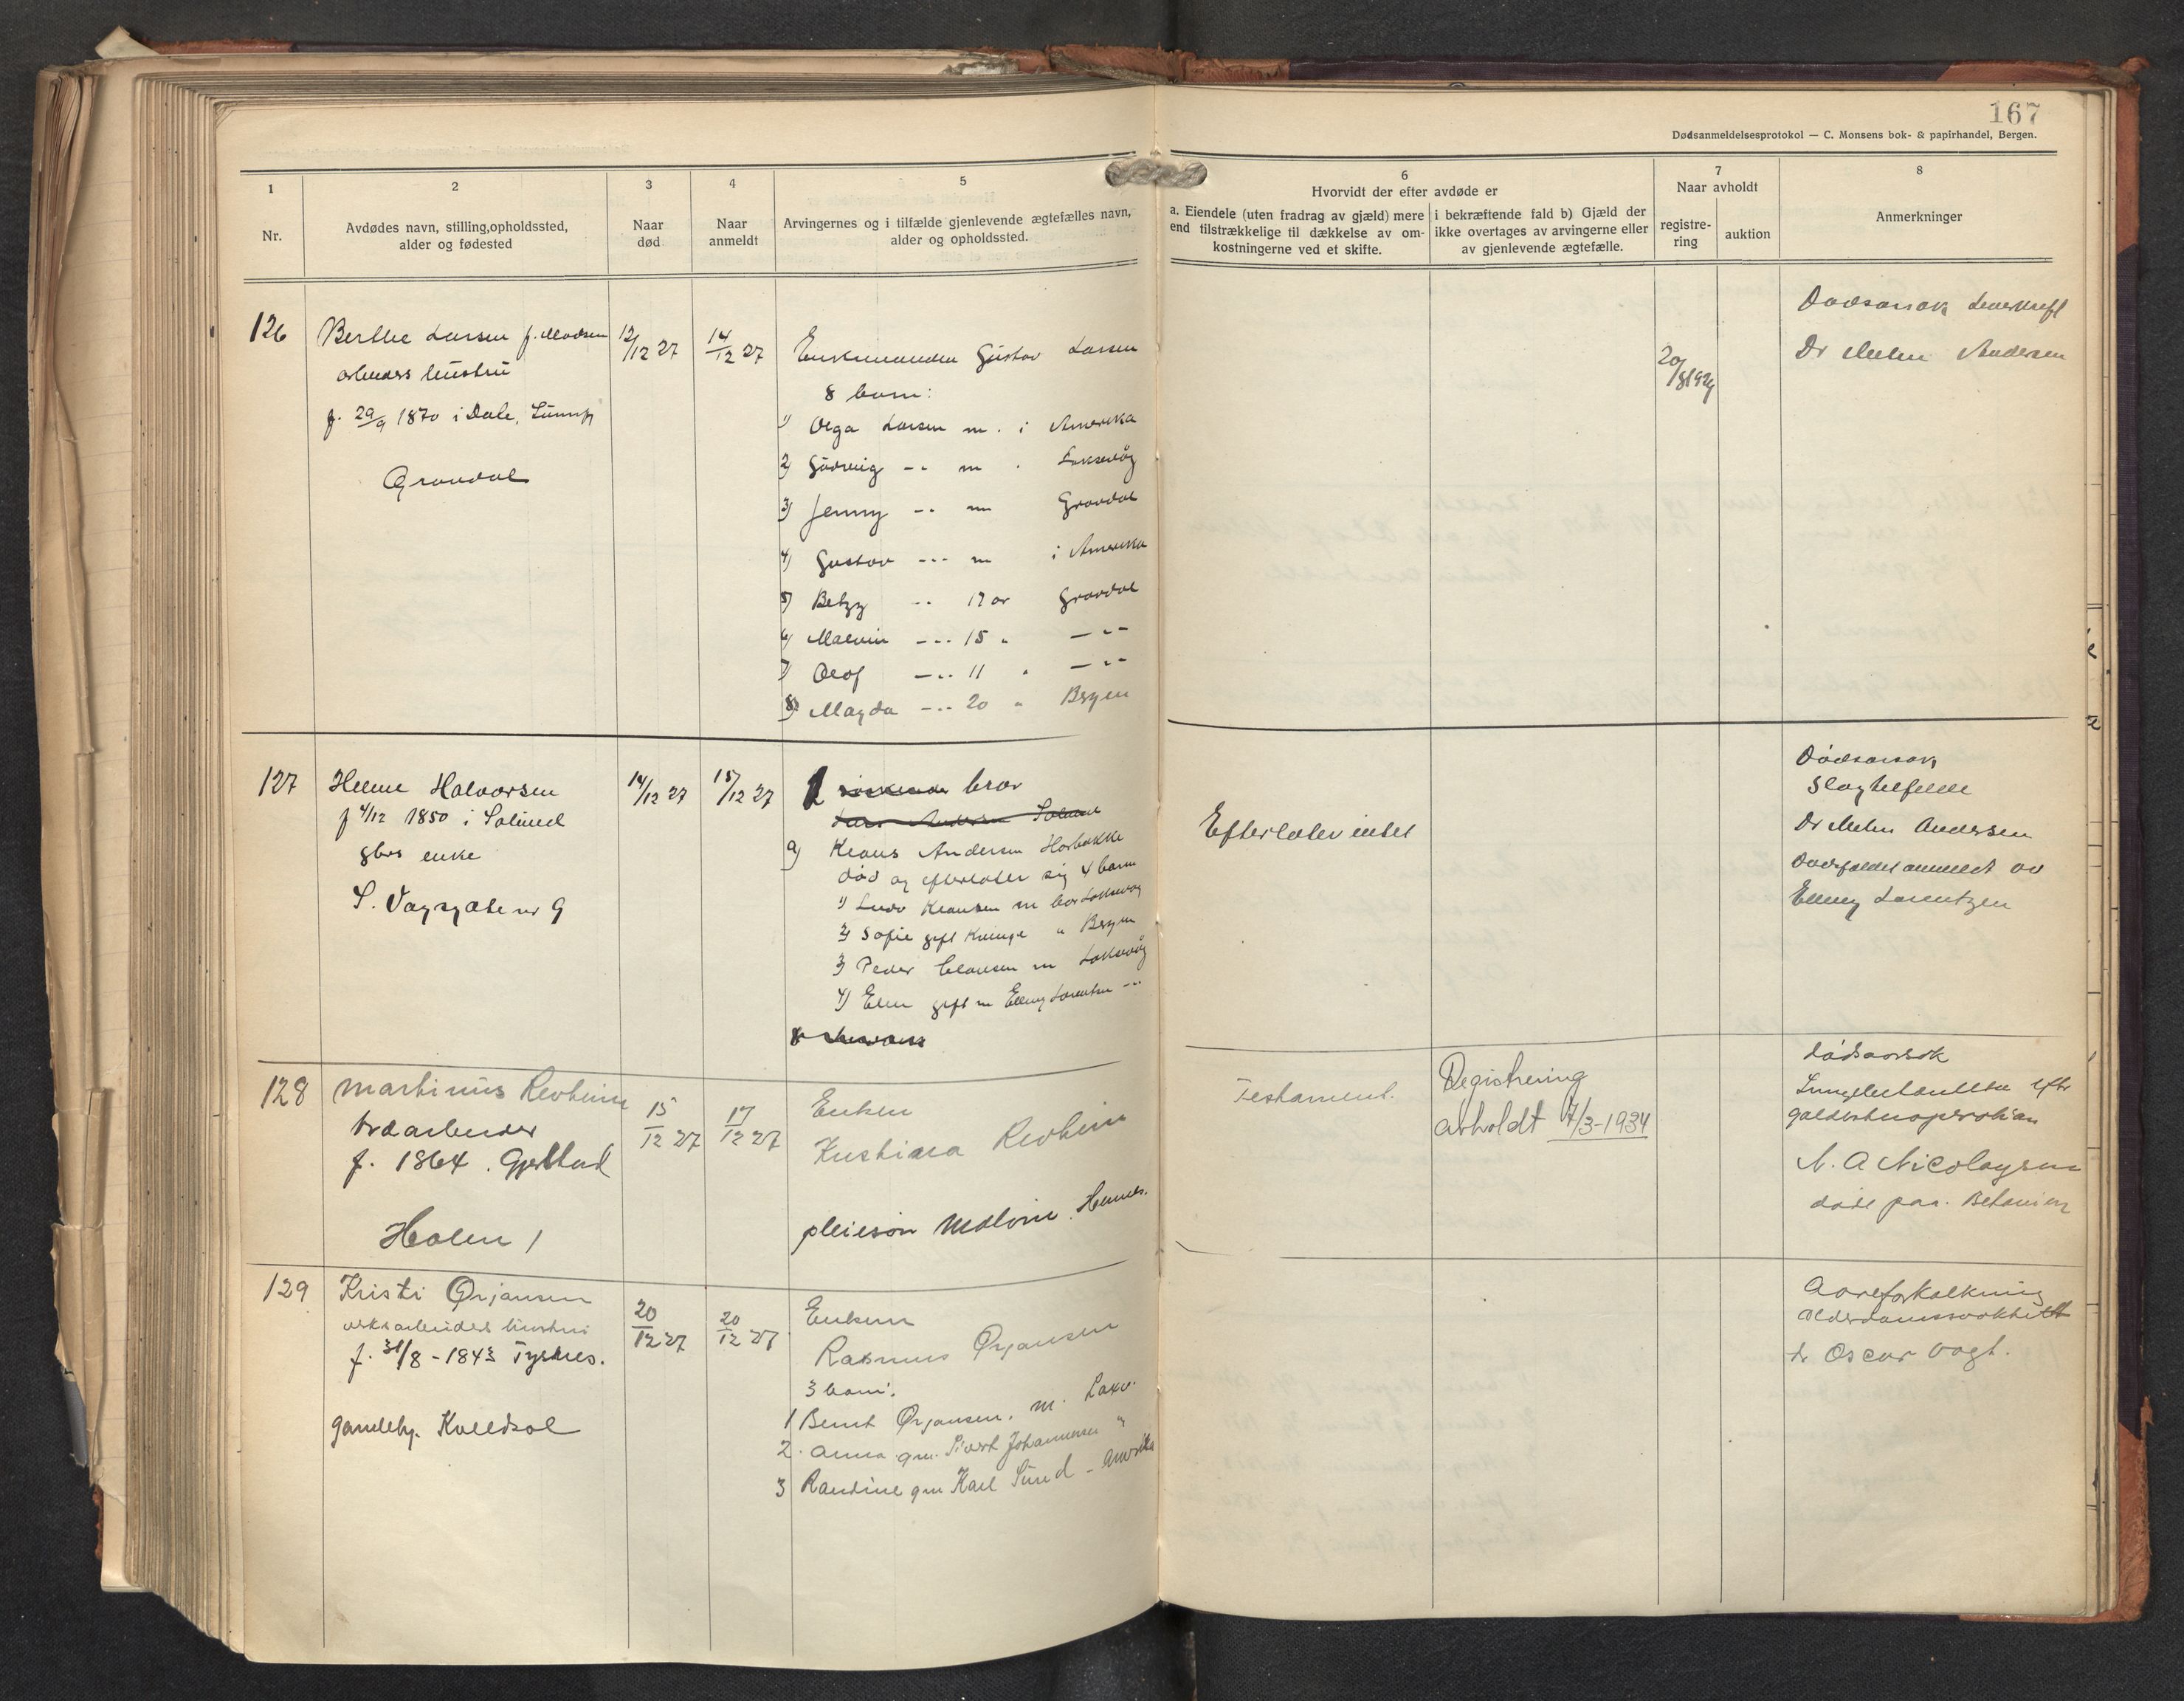 167
Dødsanmeldelsesprotokol — C. Monsens bok- & papirhandel, Bergen.
1
Nr.
2
Avdødes navn, stilling, opholdssted,
alder og fødested
3
Naar
død
4
Naar
anmeldt
5
Arvingernes og i tilfælde gjenlevende ægtefælles navn,
alder og opholdssted.
6
Hvorvidt der efter avdøde er
a. Eiendele (uten fradrag av gjæld) mere
end tilstrækkelige til dækkelse av om-
kostningerne ved et skifte.
i bekræftende fald b) Gjæld der
ikke overtages av arvingerne eller
av gjenlevende ægtefælle.
7
Naar avholdt
registre-
ring
auktion
8
Anmerkninger
126
Berthe Larsen f. Madsen
arbeiders hustru
f. 29/9 1870 i Dale,
Gravdal
12/12 27
14/12 27
Enkemanden Gustav Larsen
8 barn:
1) Olga Larsen m. i Amerika
2) -"- m " Laksevåg
3) Jenny -"- m Gravdal
4) Gustav -"- m i Amerika
5) Betzy -"- 17 år Gravdal
6) Malvin -"- 15 " -"-
7) Olof -"- 11 " -"-
8) Magda -"- 20 " Bergen
20/8 1929
Dødsårsak Leverkreft
Dr Andersen
127
Helene Halvorsen
f 4/12 1850 i Solund
gbrs enke
S. Vågsgate nr 9
14/12 27
15/12 27
1 bror
Lars Andersen
a) Klaus Andersen Horbakke
død og efterlater sig 4 barn
1) Ludv Klausen m bor Laksevåg
2) Sofie gift Kvinge " Bergen
3) Peder Clausen m Laksevåg
4) Elen gift m Elling Lorentzen -"-
Efterlater intet
Dødsårsak
Slagtilfelde
Dr Andersen
Dødsfaldet anmeldt av
Elling Lorentzen
128
Martinus Revheim
f. 1864. Gjerstad
Holen 1
15/12 27
17/12 27
Enken
Kristiana Revheim
pleiesøn
Testament.
Registrering
avholdt 7/3-1934
dødsaarsak
Lungebetændelse efter
galdestensoperation
N. A Nicolaysen
døde paa. Betanien
129
Kristi Ørjansen
verksarbeiders hustru
f. 31/8 - 1843 Tysnes.
gamleh. Kveldsol
20/12 27
20/12 27
Enkem
Rasmus Ørjansen
3 barn:
1 Bernt Ørjansen. m. Laxv.
2. Anna gm. Sivert Johannesen "
3 Randine gm Karl Sund - Amerika
Aareforkalkning
alderdomssvakhet
dr Oscar Vogt.